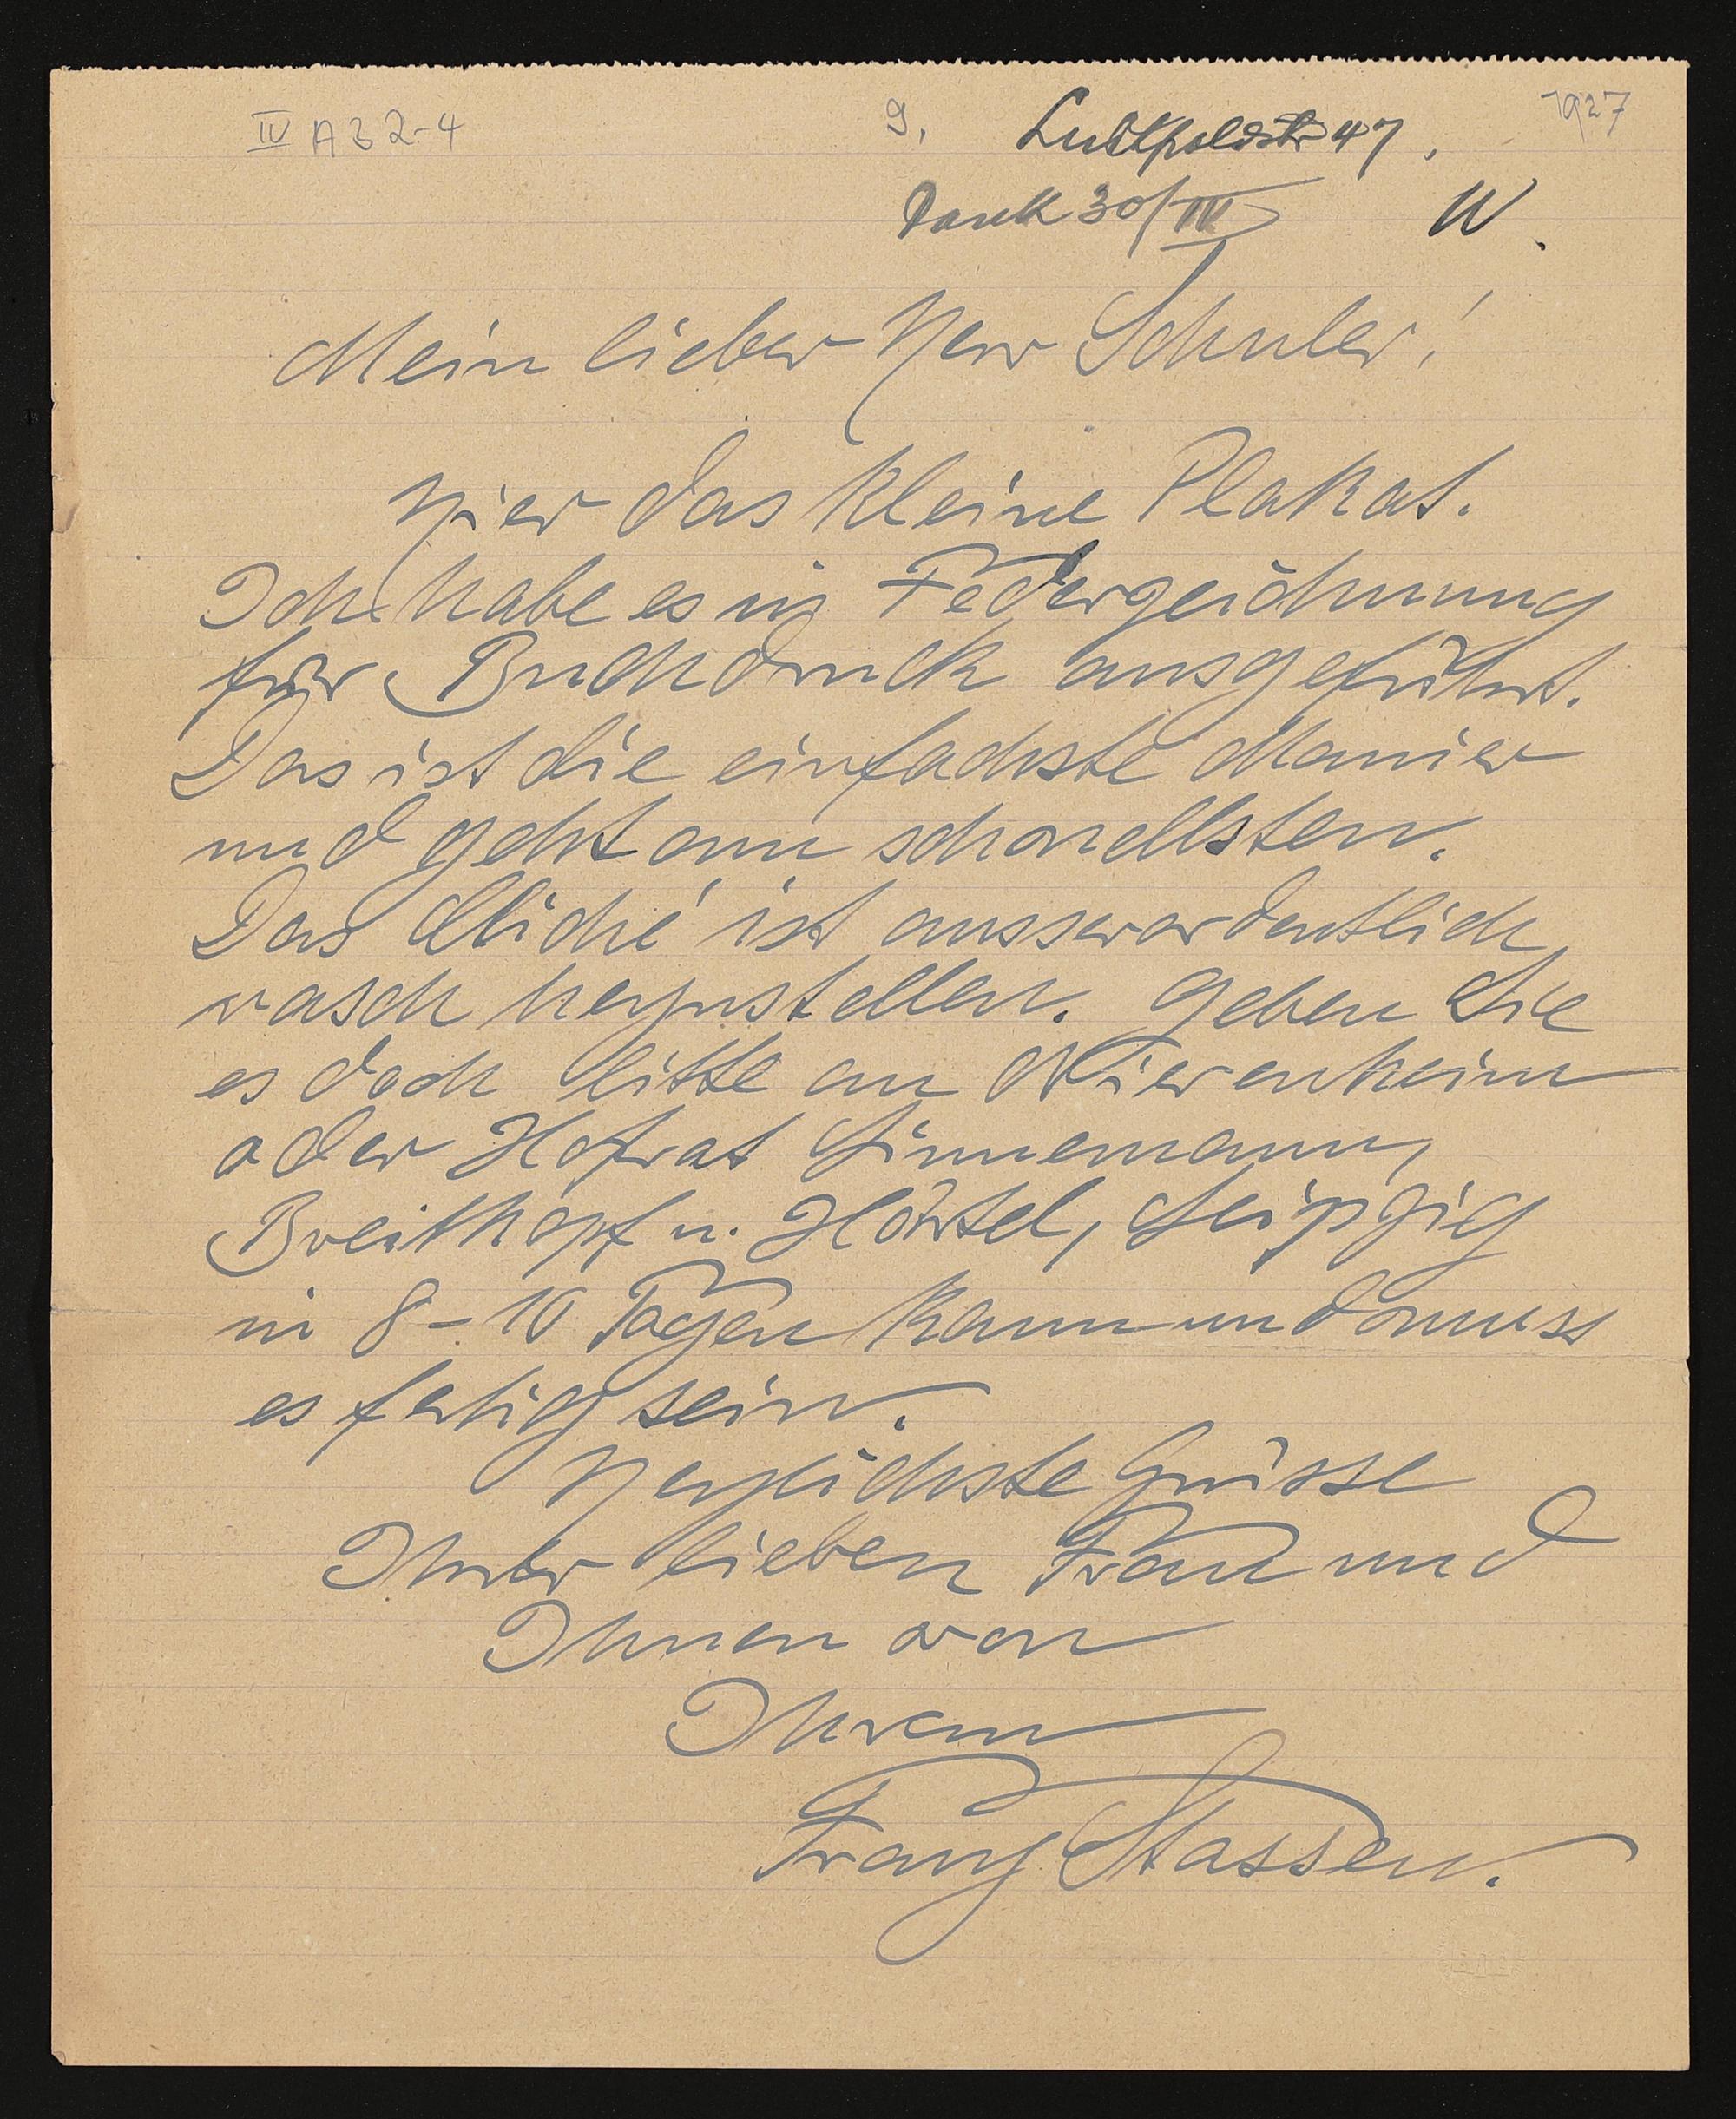 IV A 3 2-4
9.
1927
Luitpoldstr 47.
Dank 30/IV
W.
Mein lieber Herr Schuler!
Hier das kleine Plakat.
Ich habe es in Federzeichnung
für Buchdruck ausgeführt.
Das ist die einfachste Manier
und geht am schnellsten.
Das Cliché ist ausserordentlich
rasch herzustellen. Geben Sie
es doch bitte an Nierenheim
oder Hofrat Linnemann,
Breitkopf u. Härtel, Leipzig
in 8-10 Tagen kann und muss
es fertig sein.
Herzlichste Grüsse
Ihrer lieben Frau und
Ihnen von
Ihrem
Franz Stassen.